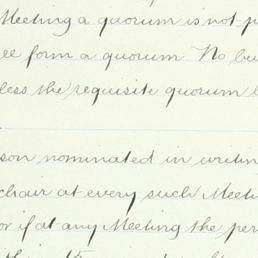 Meeting a quorum is not
ee form a quorum. No
less the requisite quorum
son nominated in
chair at every such
or if at any Meeting the